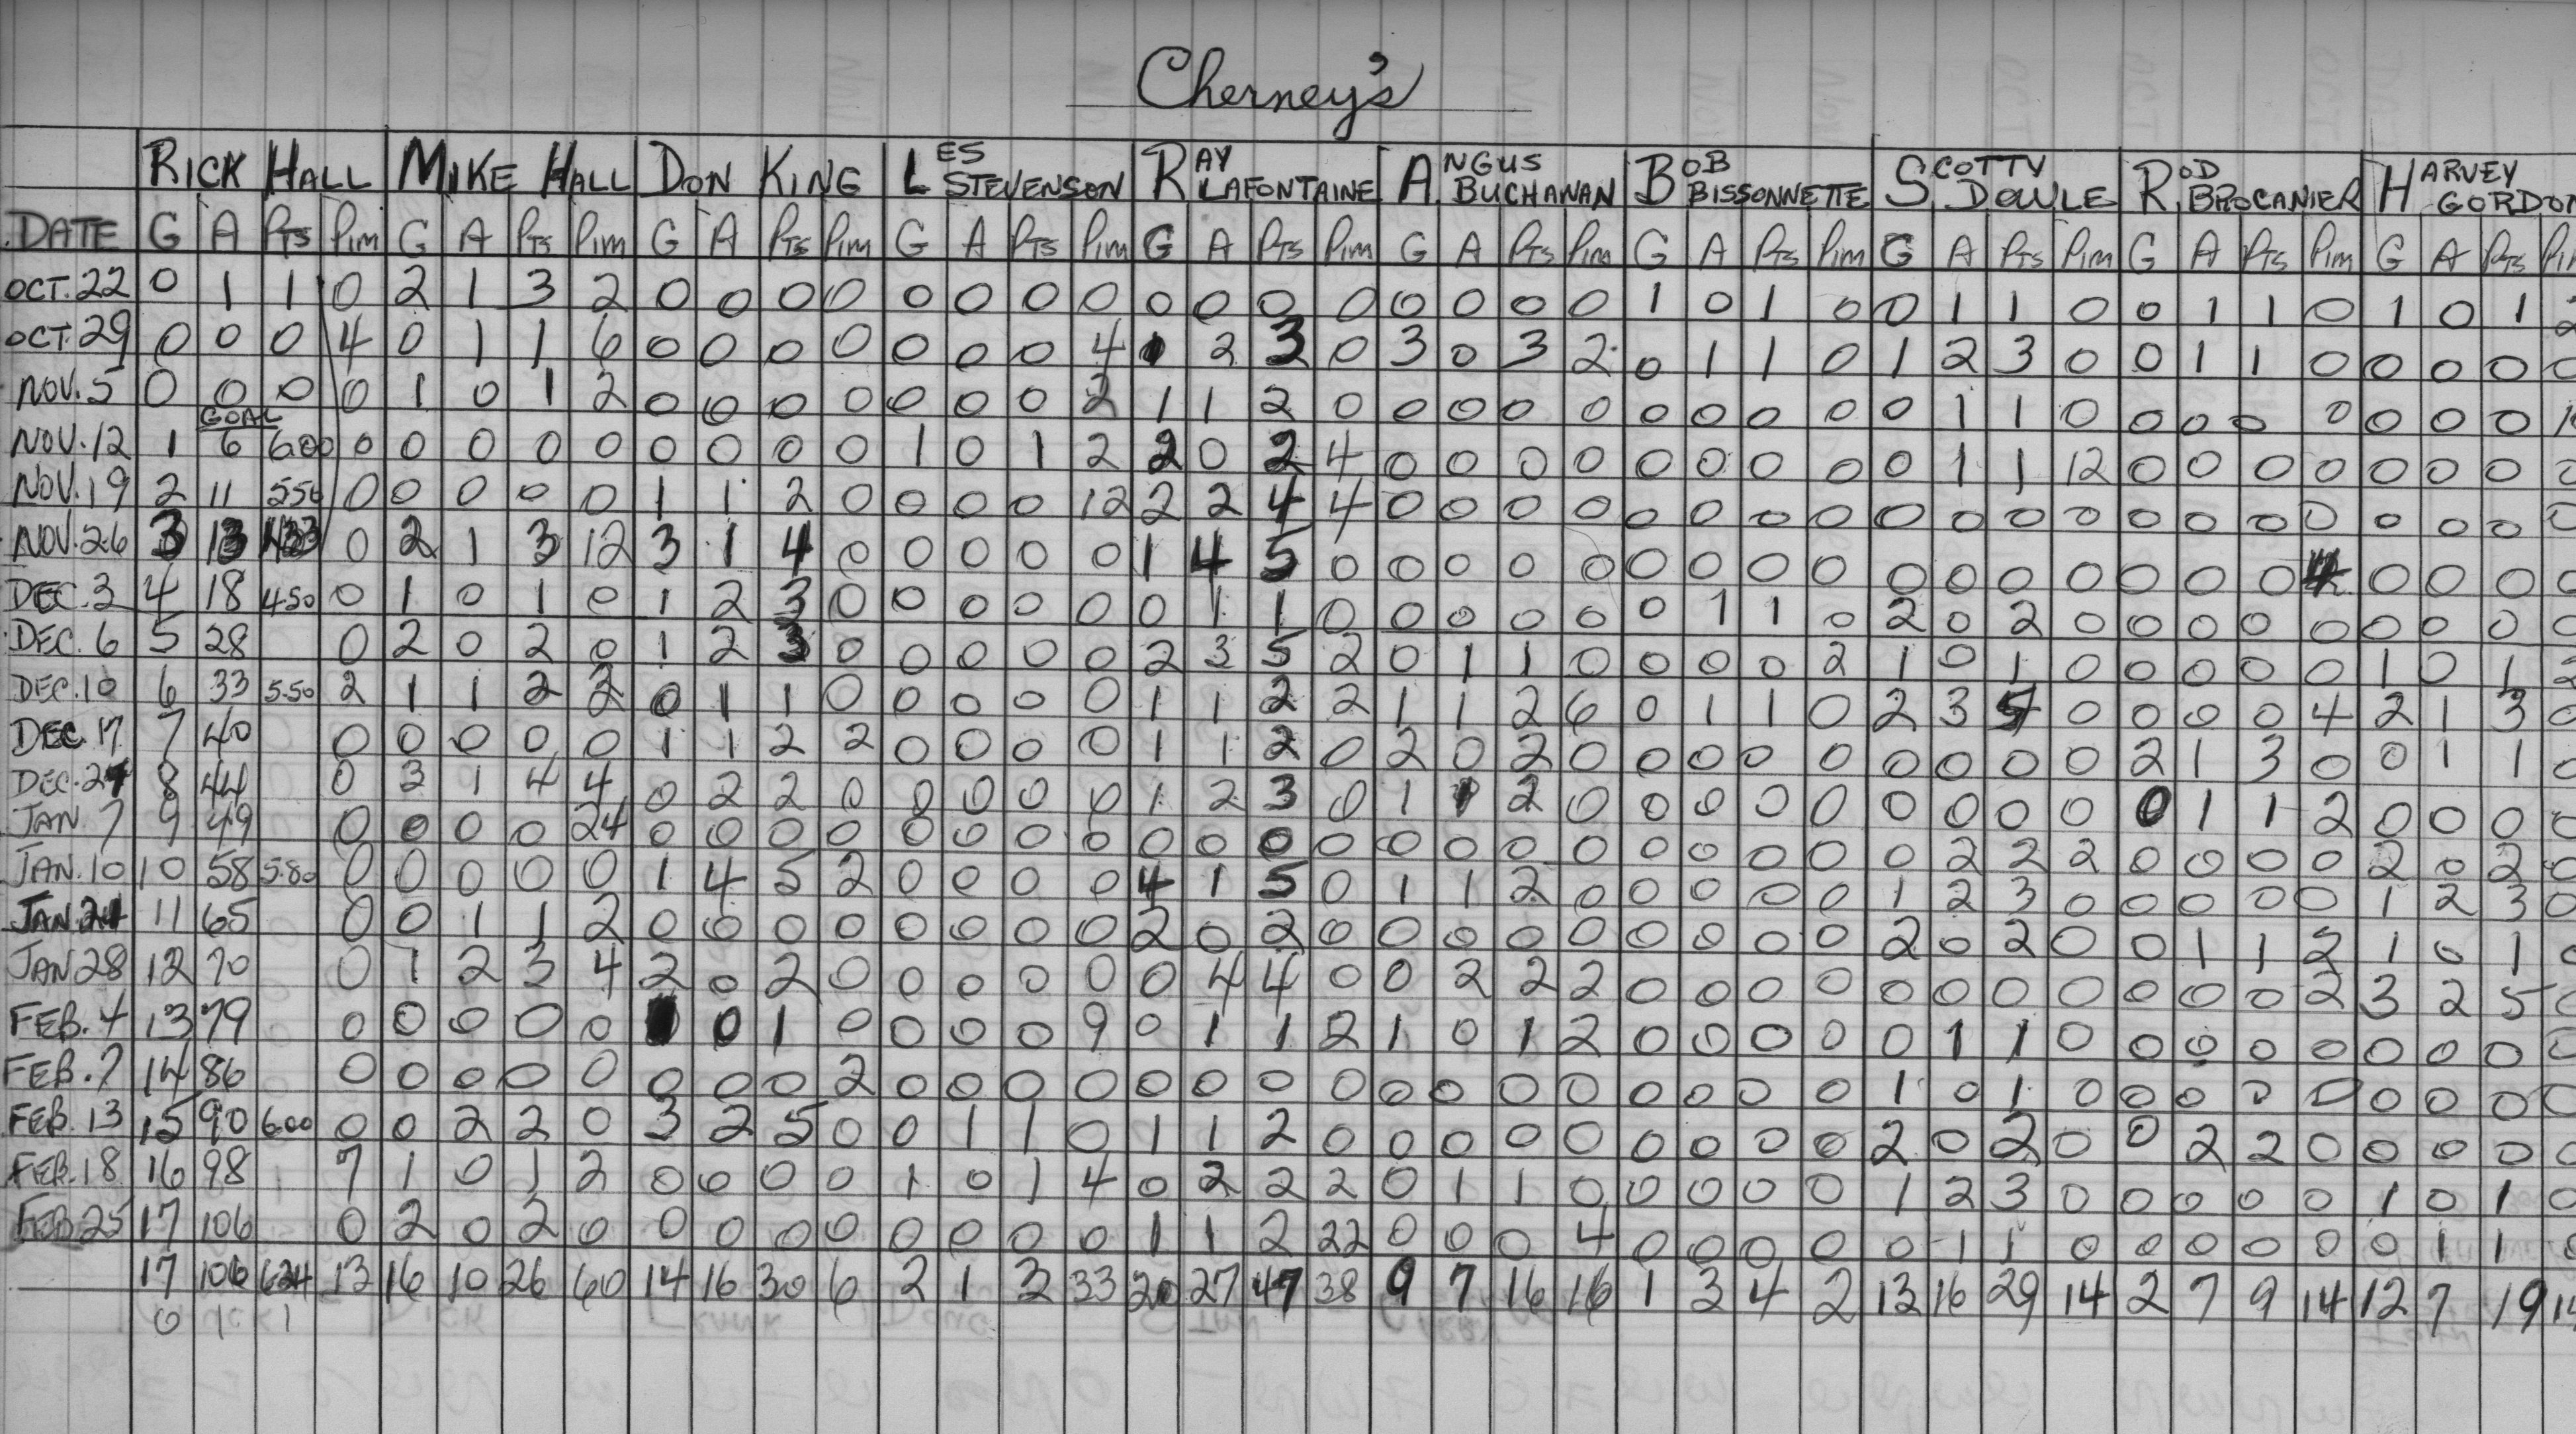 Cherney's
RICK HALL MIKE HALL DON KING LES STEVENSON RAY LAFONTAINE ANGUS BUCHANAN BOB BISSONNETTE SCOTTY DOWLE ROD BROCANIER HARVEY GORDON
DATE G A Pts Pim G A Pts Pim G A Pts Pim G A Pts Pim G A Pts Pim G A Pts Pim G A Pts Pim G A Pts Pim G A Pts Pim G A Pts Pim
OCT. 22 0 1 1 0 2 1 3 2 0 0 0 0 0 0 0 0 0 0 0 0 0 0 0 0 1 0 1 0 0 1 1 0 0 1 1 0 1 0 1 2
OCT. 29 0 0 0 4 0 1 1 6 0 0 0 0 0 0 0 4 1 2 3 0 3 0 3 2 0 1 1 0 1 2 3 0 0 1 1 0 0 0 0 0
NOV. 5 0 0 0 0 1 0 1 2 0 0 0 0 0 0 0 2 1 1 2 0 0 0 0 0 0 0 0 0 0 1 1 0 0 0 0 0 0 0 0
GOAL
NOV. 12 1 6 600 0 0 0 0 0 0 0 0 0 1 0 1 2 2 0 2 4 0 0 0 0 0 0 0 0 0 1 1 12 0 0 0 0 0 0 0 0
NOV. 19 2 11 550 0 0 0 0 0 1 1 2 0 0 0 0 12 2 2 4 4 0 0 0 0 0 0 0 0 0 0 0 0 0 0 0 0 0 0 0 0
NOV. 26 3 13 433 0 2 1 3 12 3 1 4 0 0 0 0 0 1 4 5 0 0 0 0 0 0 0 0 0 0 0 0 0 0 0 0 4 0 0 0 0
DEC. 3 4 18 450 0 1 0 1 0 1 2 3 0 0 0 0 0 0 1 1 0 0 0 0 0 0 1 1 0 2 0 2 0 0 0 0 0 0 0 0 0
DEC. 6 5 28 0 2 0 2 0 1 2 3 0 0 0 0 0 2 3 5 2 0 1 1 0 0 0 0 2 1 0 1 0 0 0 0 0 1 0 1 2
DEC. 10 6 33 5.50 2 1 1 2 2 0 1 1 0 0 0 0 0 1 1 2 2 1 1 2 6 0 1 1 0 2 3 5 0 0 0 0 4 2 1 3 0
DEC. 17 7 40 0 0 0 0 0 1 1 2 2 0 0 0 0 1 1 2 0 2 0 2 0 0 0 0 0 0 0 0 0 2 1 3 0 0 1 1 0
DEC. 27 8 44 0 3 1 4 4 0 2 2 0 0 0 0 0 1 2 3 0 1 1 2 0 0 0 0 0 0 0 0 0 0 1 1 2 0 0 0 0
JAN. 7 9 49 0 0 0 0 24 0 0 0 0 0 0 0 0 0 0 0 0 0 0 0 0 0 0 0 0 0 2 2 2 0 0 0 0 2 0 2 0
JAN. 10 10 58 5.80 0 0 0 0 0 1 4 5 2 0 0 0 0 4 1 5 0 1 1 2 0 0 0 0 0 1 2 3 0 0 0 0 0 1 2 3 0
JAN. 21 11 65 0 0 1 1 2 0 0 0 0 0 0 0 0 2 0 2 0 0 0 0 0 0 0 0 0 2 0 2 0 0 1 1 2 1 0 1 0
JAN 28 12 70 0 1 2 3 4 2 0 2 0 0 0 0 0 0 4 4 0 0 2 2 2 0 0 0 0 0 0 0 0 0 0 0 2 3 2 5 0
FEB. 4 13 79 0 0 0 0 0 0 1 0 0 0 0 9 0 1 1 2 1 0 1 2 0 0 0 0 0 1 1 0 0 0 0 0 0 0 0 0
FEB. 7 14 86 0 0 0 0 0 0 0 0 2 0 0 0 0 0 0 0 0 0 0 0 0 0 0 0 0 1 0 1 0 0 0 0 0 0 0 0 0
FEB. 13 15 90 600 0 0 2 2 0 3 2 5 0 0 1 1 0 1 1 2 0 0 0 0 0 0 0 0 0 2 0 2 0 0 2 2 0 0 0 0 0
FEB. 18 16 98 7 1 0 1 2 0 0 0 0 1 0 1 4 0 2 2 2 0 1 1 0 0 0 0 0 1 2 3 0 0 0 0 0 1 0 1 0
FEB. 25 17 106 0 2 0 2 0 0 0 0 0 0 0 0 0 1 1 2 22 0 0 0 4 0 0 0 0 0 1 1 0 0 0 0 0 0 1 1 0
17 106 624 13 16 10 26 60 14 16 30 6 2 1 3 33 20 27 47 38 9 7 16 16 1 3 4 2 13 16 29 14 2 7 9 14 12 7 19 14